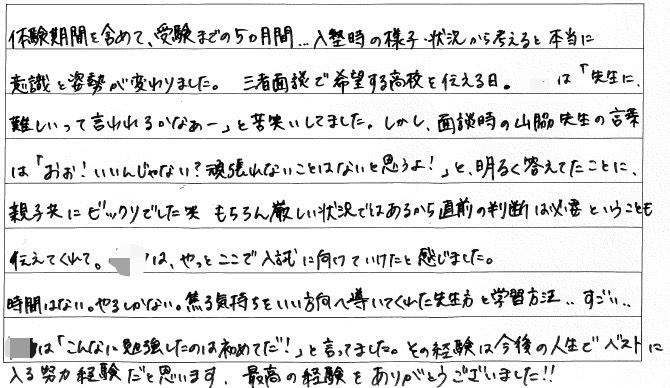 体験期間を含めて、受験までの5ヶ月間…入塾時の様子・状況から考えると本当に
意識と姿勢が変わりました。 三者面談で希望する高校を伝える日。 は「先生に、
難しいって言われるかなあー」と苦笑いしてました。しかし、面談時の山脇先生の言葉
は「おぉ!いいんじゃない?頑張れないことはないと思うよ!」と、明るく答えてたことに、
親子共にビックリでした笑 もちろん厳しい状況ではあるから直前の判断は必要ということも
伝えてくれて。 は、やっとここで入試に向けていけたと感じました。
時間はない。やるしかない。焦る気持ちをいい方向へ導いてくれた先生方と学習方法‥すごい‥
は「こんなに勉強したのは初めてだ!」と言ってました。その経験は今後の人生でベストに
入る努力経験だと思います。最高の経験をありがとうございました!!